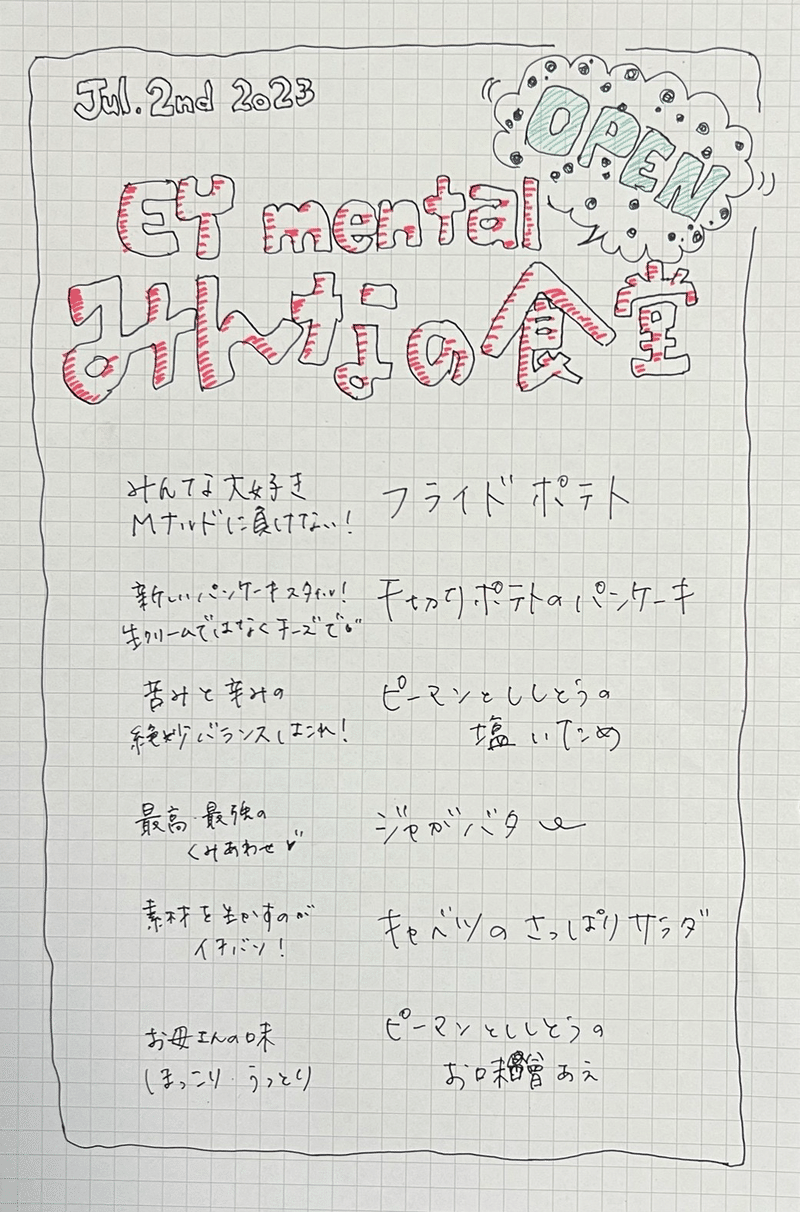 Jul. 2nd 2023
OPEN
EY mental
みんなの食堂
みんな大好き
Mナルドに負けない!
フライドポテト
新しいパンケーキスタイル!
生クリームではなくチーズで
千切りポテトのパンケーキ
苦みと辛みの
絶妙バランスはこれ!
ピーマンとししとうの
塩いため
最高・最強の
くみあわせ
ジャガバター
素材を生かすのが
イチバン!
キャベツのさっぱりサラダ
お母さんの味
ほっこり・うっとり
ピーマンとししとうの
お味噌あえ